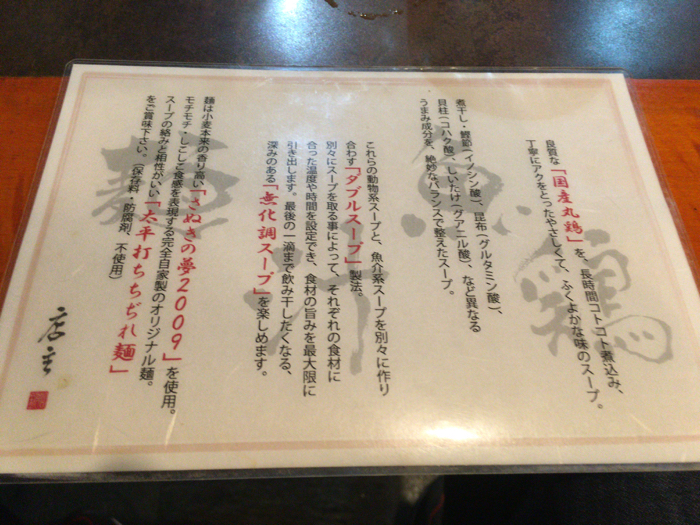 良質な「国産丸鶏」を、長時間コトコト煮込み、
丁寧にアクをとったやさしくて、ふくよかな味のスープ。
煮干し・鰹節(イノシン酸)、昆布(グルタミン酸)、
貝柱(コハク酸)、しいたけ(グアニル酸)、など異なる
うまみ成分を、絶妙なバランスで整えたスープ。
これらの動物系スープと、魚介系スープを別々に作り
合わす「ダブルスープ」製法。
別々にスープを取る事によって、それぞれの食材に
合った温度や時間を設定でき、食材の旨みを最大限に
引き出します。最後の一滴まで飲み干したくなる、
深みのある「無化調スープ」を楽しめます。
麺は小麦本来の香り高い「さぬきの夢2009」を使用。
モチモチ・しこしこ食感を表現する完全自家製のオリジナル麺。
スープの絡みと相性がいい「太平打ちちぢれ麺」
をご賞味下さい。(保存料・防腐剤、不使用)
店主
鶏
魚
汁
麺